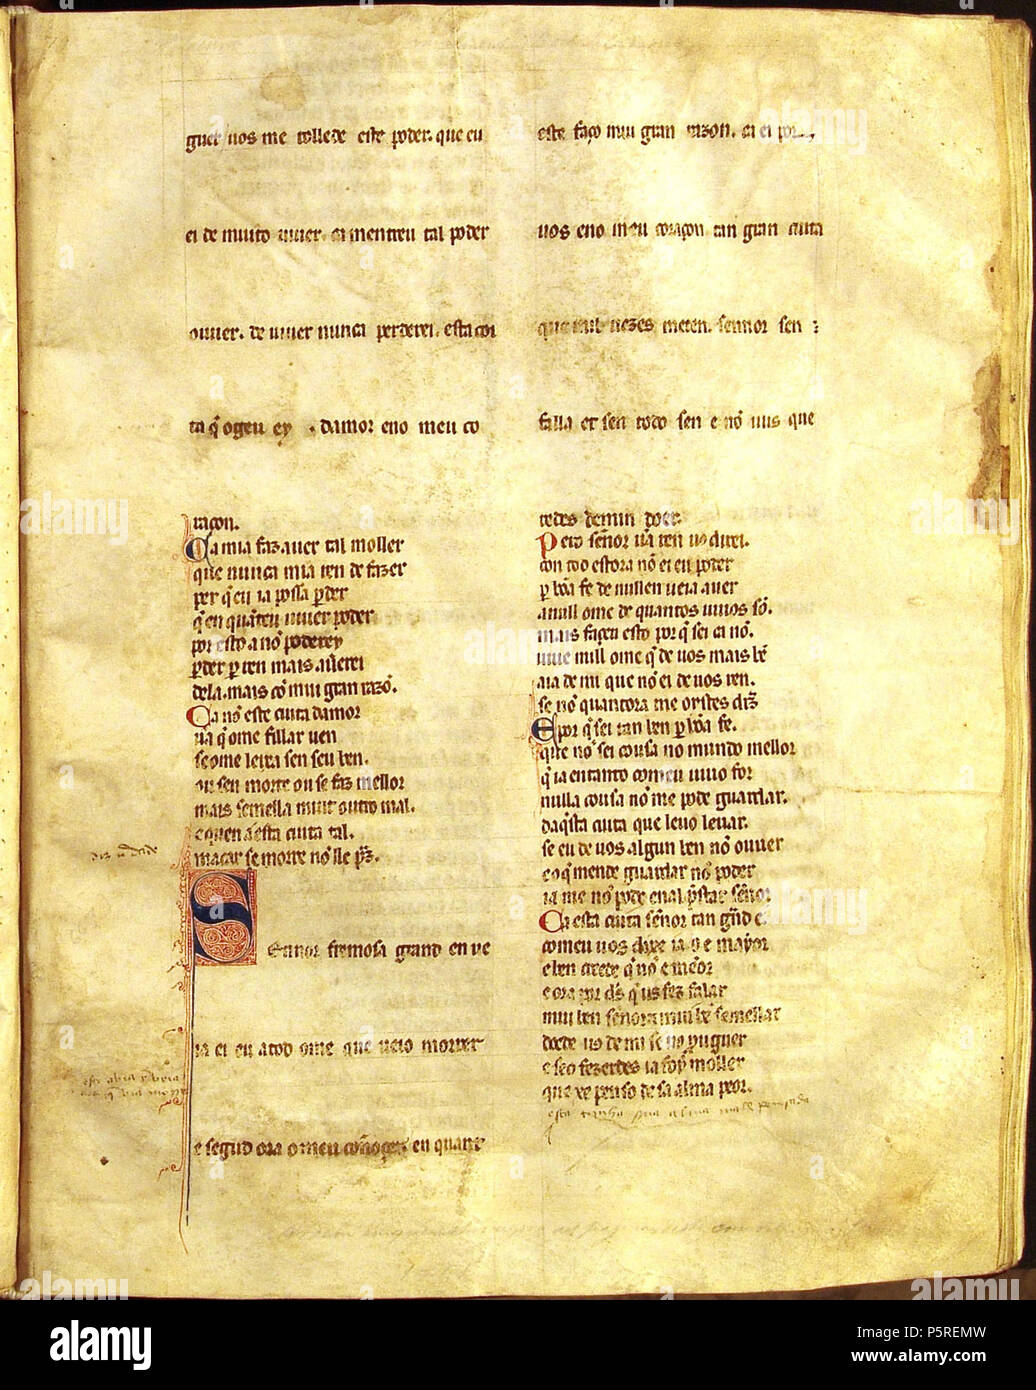 quer uos me tollede este poder. que eu
ei de muito uiuer. ca mentreu tal poder
ouuer. de uiuer nunca perderei. esta coi
ta q̄ ogeu ey . damor eno meu co
raçon.
Ca mia faz auer tal moller
que nunca mia ren de fazer
per q̄ eu ia possa p̄der
q̄ en quāteu uiuer poder
por esto a nō poderey
p̄der p̄ ren mais au̅erei
dela. mais cō mui gran razō.
Ca nō este cuita damor
ūa q̄ ome fillar uen
se ome leixa sen seu ben.
ou sen morte ou se faz mellor
mais semella muit outro mal.
e quen a esta cuita tal.
macar se morre nō lle p̄z.
Sennor fremosa grand en ue
ia ei eu atod ome que ueio morrer
e segūd ora o meu cōnoçer en quant
este faço mui gran razon. ca ei por
uos eno meu coraçon tan gran cuita
que mil uezes meten. sennor sen
falla et sen todo sen e nō uus que
redes demin doer.
Pero señor ūa ren us direi.
con tod estora nō ei eu poder
p̄ bōa fe de nullen ueia auer
a null ome de quantos uiuos sō.
mais façeu esto por q̄ sei ca nō.
uiue null ome q̄ de uos mais bē
aia de mi que nō ei de uos ren.
se nō quantora me oistes diz̄
E por q̄ sei tan ben p̄ bōa fe.
que nō sei cousa no mundo mellor
q̄ ia entanto comeu uiuo for
nulla cousa nō me pode guardar.
daq̄sta cuita que leuo leuar.
se eu de uos algun ben nō ouuer
eo q̄ mende guardar nō poder
ia me nō pode en al p̄star señor
Ca esta cuita señor tan grā̄d e.
comeu uos dixe ia e mayor
e ben creede q̄ nō e mēor
e ora por d̄s q̄ us fez falar
mui ben señor a mui bē semellar
doede us de mi se us prouguer
e se o fezerdes ia soy moller
que xe penso de sa alma peor.
esta tinha sua alma mal pensada
alamy
Image ID: P5REMW
www.alamy.com